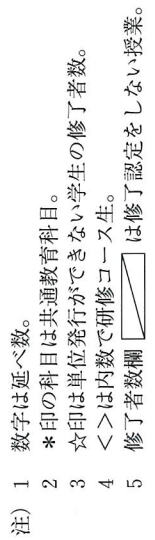 注） 1 数字は延べ数。
2 ＊印の科目は共通教育科目。
3 ☆印は単位発行ができない学生の修了者数。
4 ＜＞は内数で研修コース生。
5 修了者数欄 は修了認定をしない授業。